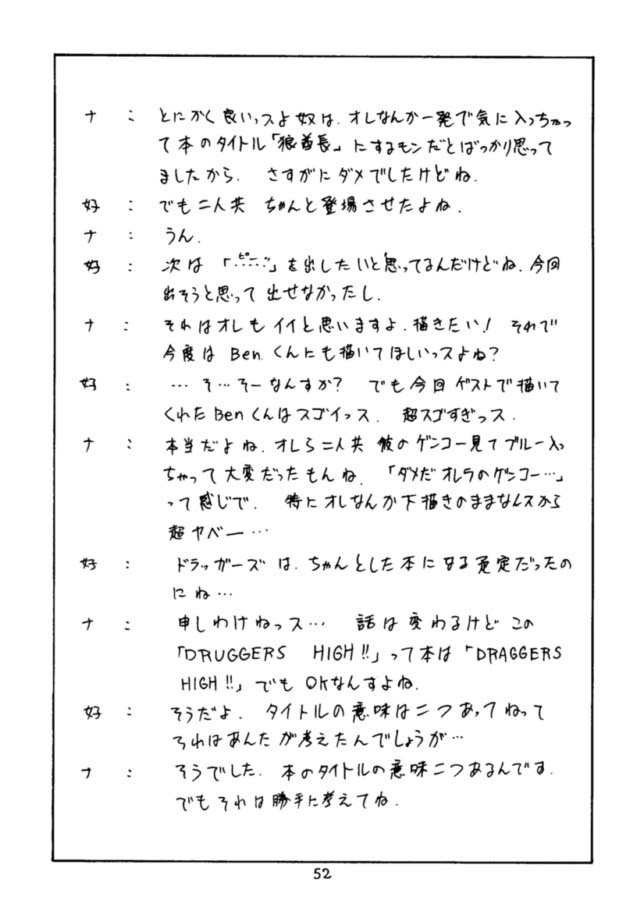 ナ : とにかく良いっスよ奴は. オレなんか一発で気に入っちゃっ
て本のタイトル「狼酋長」にするモンだとばっかり思って
ましたから. さすがにダメでしたけどね.
好 : でも二人共 ちゃんと登場させたよね.
ナ : うん.
好 : 次は「ピー」を出したいと思ってるんだけどね. 今回
出そうと思って出せなかったし.
ナ : それはオレもイイと思いますよ. 描きたい! それで
今度は Ben くんにも描いてほしいっスよね?
好 : …そ…そーなんすか? でも今回ゲストで描いて
くれたBenくんはスゴイっス. 超スゴすぎっス.
ナ : 本当だよね. オレら二人共 彼のゲンコー見てブルー入っ
ちゃって大変だったもんね. 「ダメだオレラのゲンコー…」
って感じで. 特にオレなんか下描きのままなんスから
超ヤベー…
好 : ドラッガーズは. ちゃんとした本になる予定だったの
にね…
ナ : 申しわけねっス… 話は変わるけどこの
「DRUGGERS HIGH!!」って本は「DRAGGERS
HIGH!!」でもOKなんすよね.
好 : そうだよ. タイトルの意味は二つあってねって
それはあんたが考えたんでしょうが…
ナ : そうでした. 本のタイトルの意味二つあるんです.
でもそれは勝手に考えてね.
52